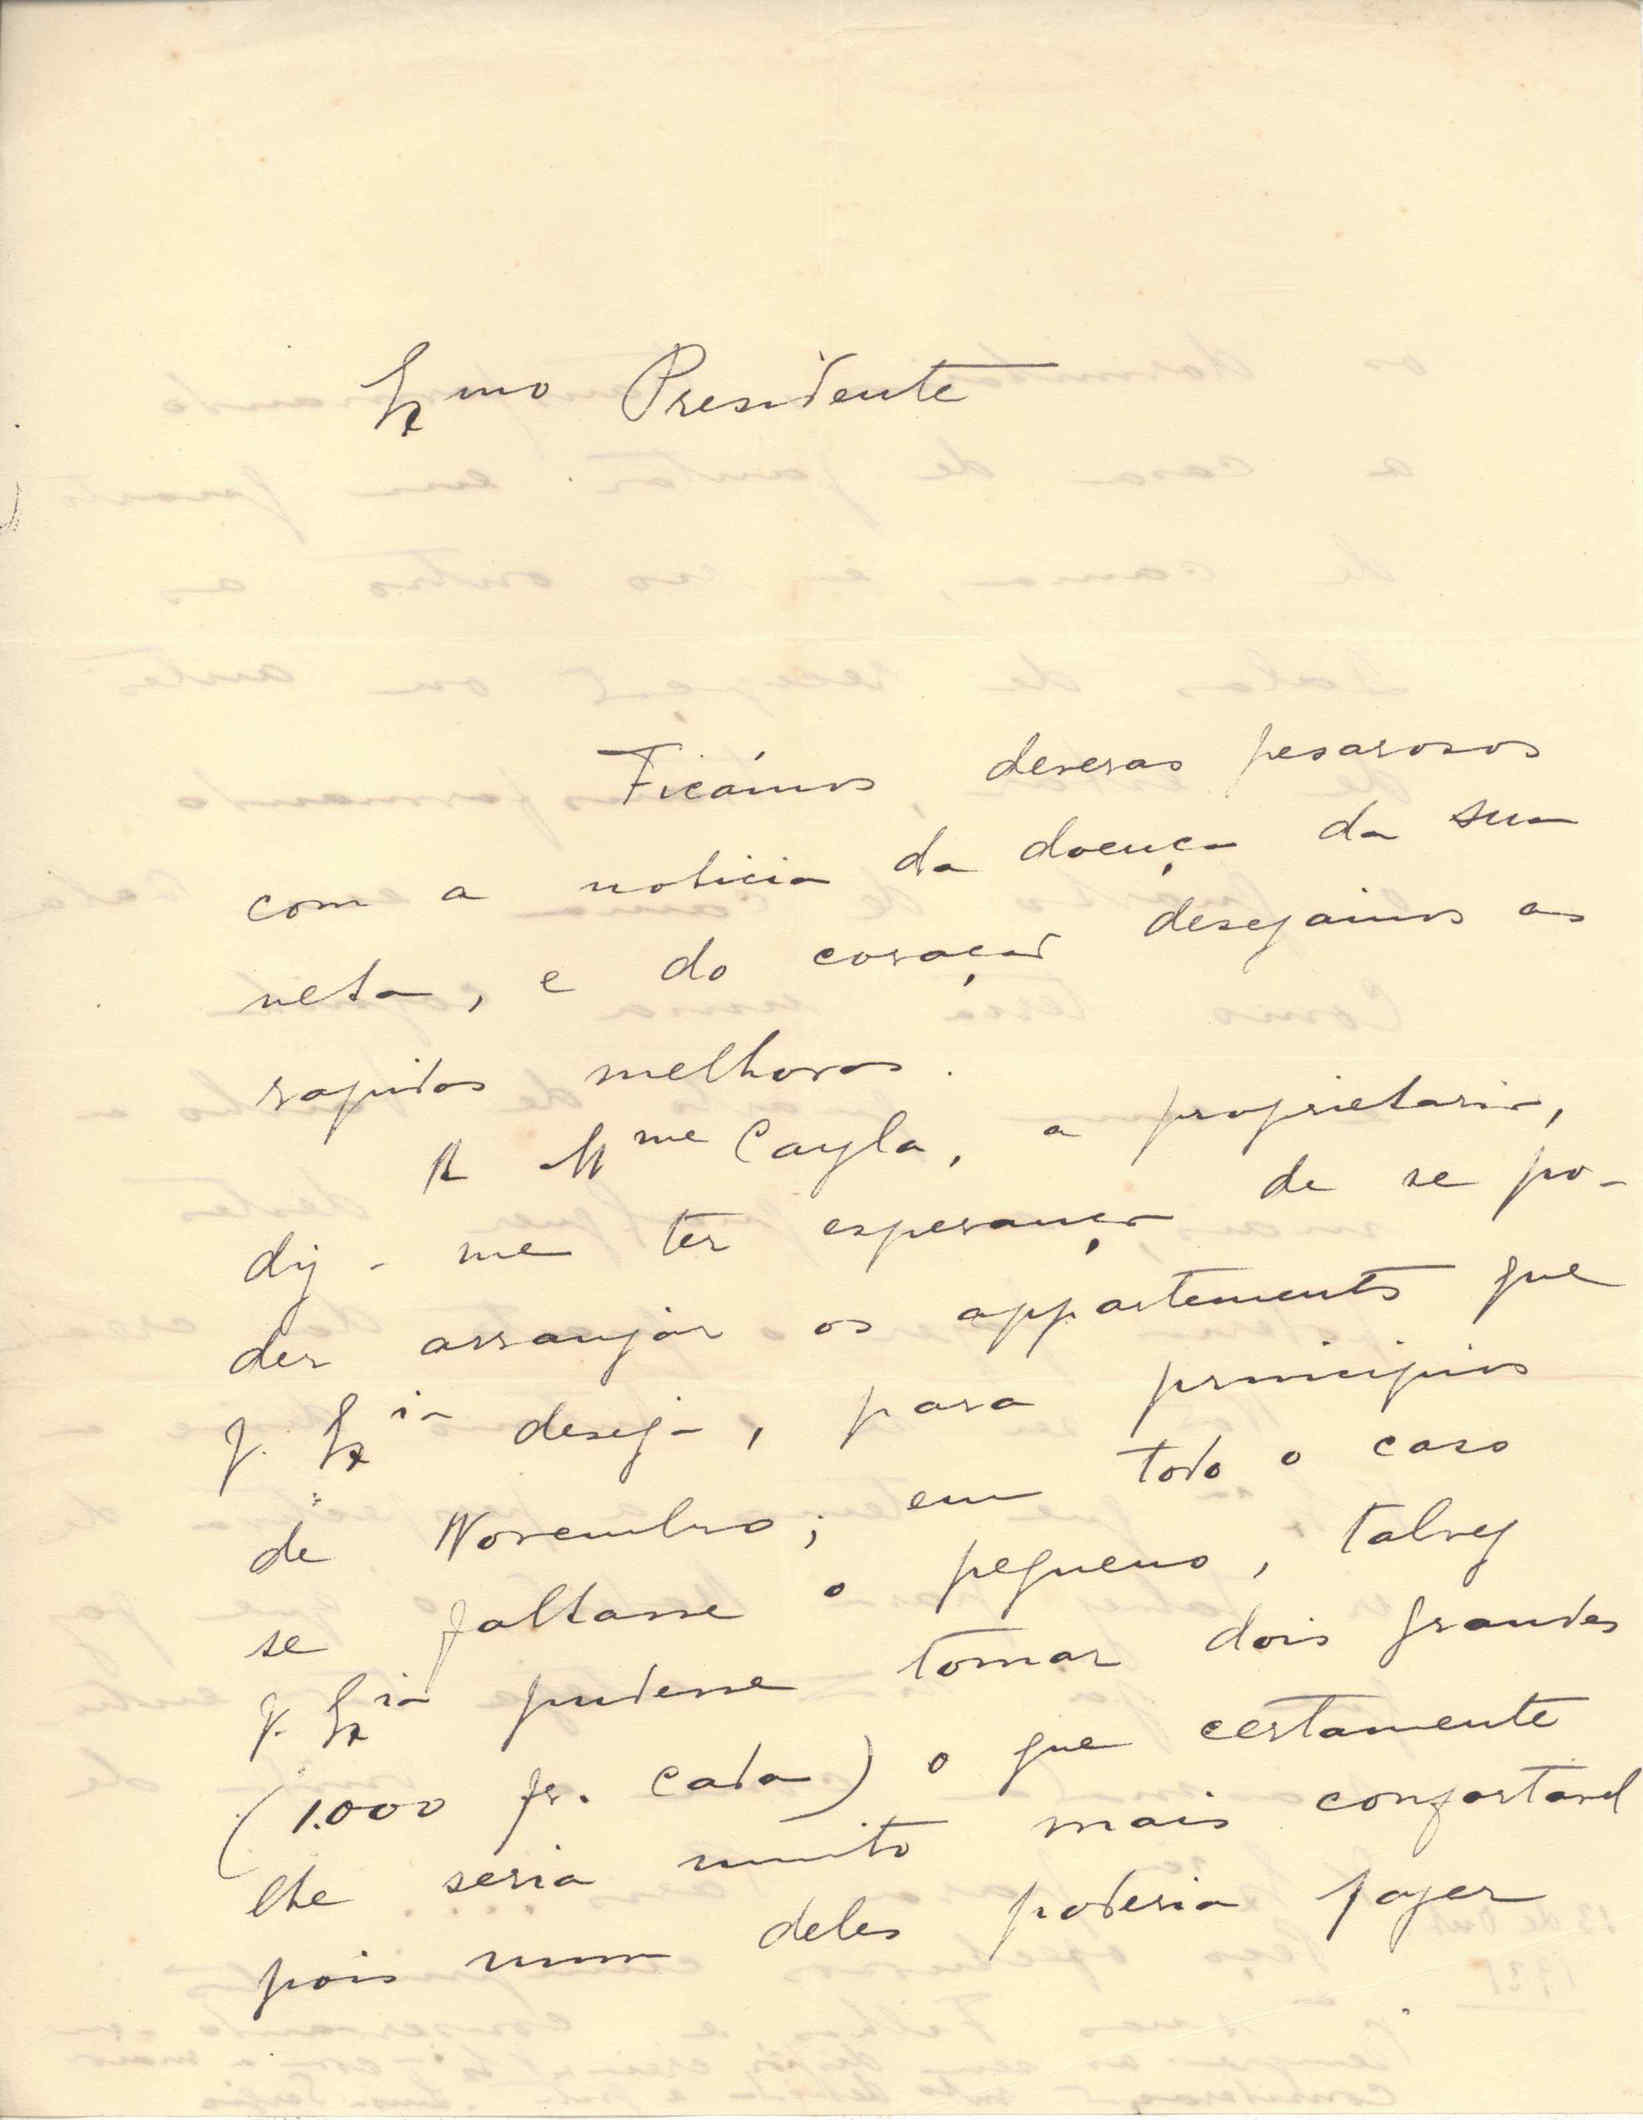 Exmo Presidente
Ficámos deveras pesarosos
com a noticia da doença da sua
neta, e do coração desejamos as
rapidas melhoras.
A Mme Cayla, a proprietaria,
diz-me ter esperança de se po-
der arranjar os appartements que
V. Exia deseja, para principios
de Novembro; em todo o caso
se faltasse o pequeno, talvez
V. Exia pudesse tomar dois grandes
(1.000 fr. cada) o que certamente
lhe seria muito mais confortavel
pois num deles poderia fazer